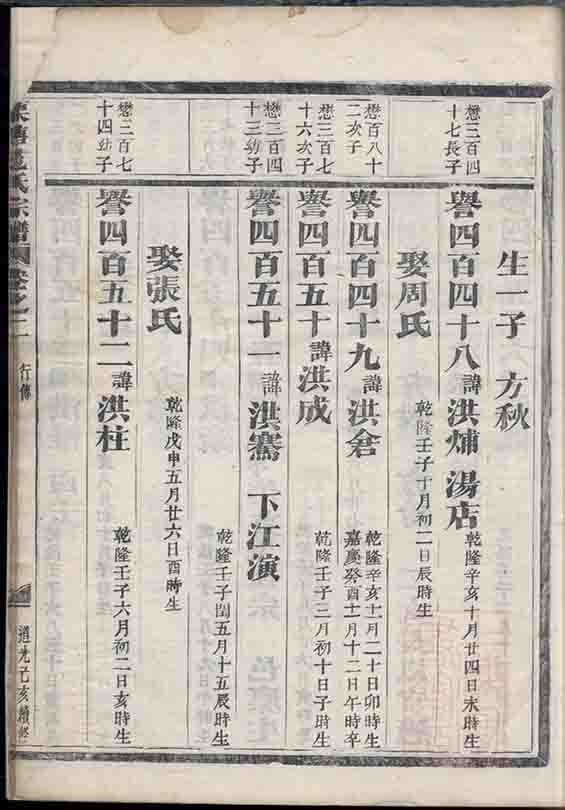 生一子 方秋
懋三百四十七長子
譽四百四十八 諱 洪煵 湯店 乾隆辛亥十月廿四日未時生
娶周氏 乾隆壬子十月初二日辰時生
懋百八十二次子
譽四百四十九 諱 洪倉 乾隆辛亥十一月二十日卯時生 嘉慶癸酉十一月十二日午時卒
懋三百七十六次子
譽四百五十 諱 洪成 乾隆壬子三月初十日子時生
懋三百四十三幼子
譽四百五十一 諱 洪騫 下江演 乾隆壬子閏五月十五辰時生
娶張氏 乾隆戊申五月廿六日酉時生
懋三百七十四幼子
譽四百五十二 諱 洪柱 乾隆壬子六月初二日亥時生
氏宗譜 卷之二 行傳 道光己亥續修